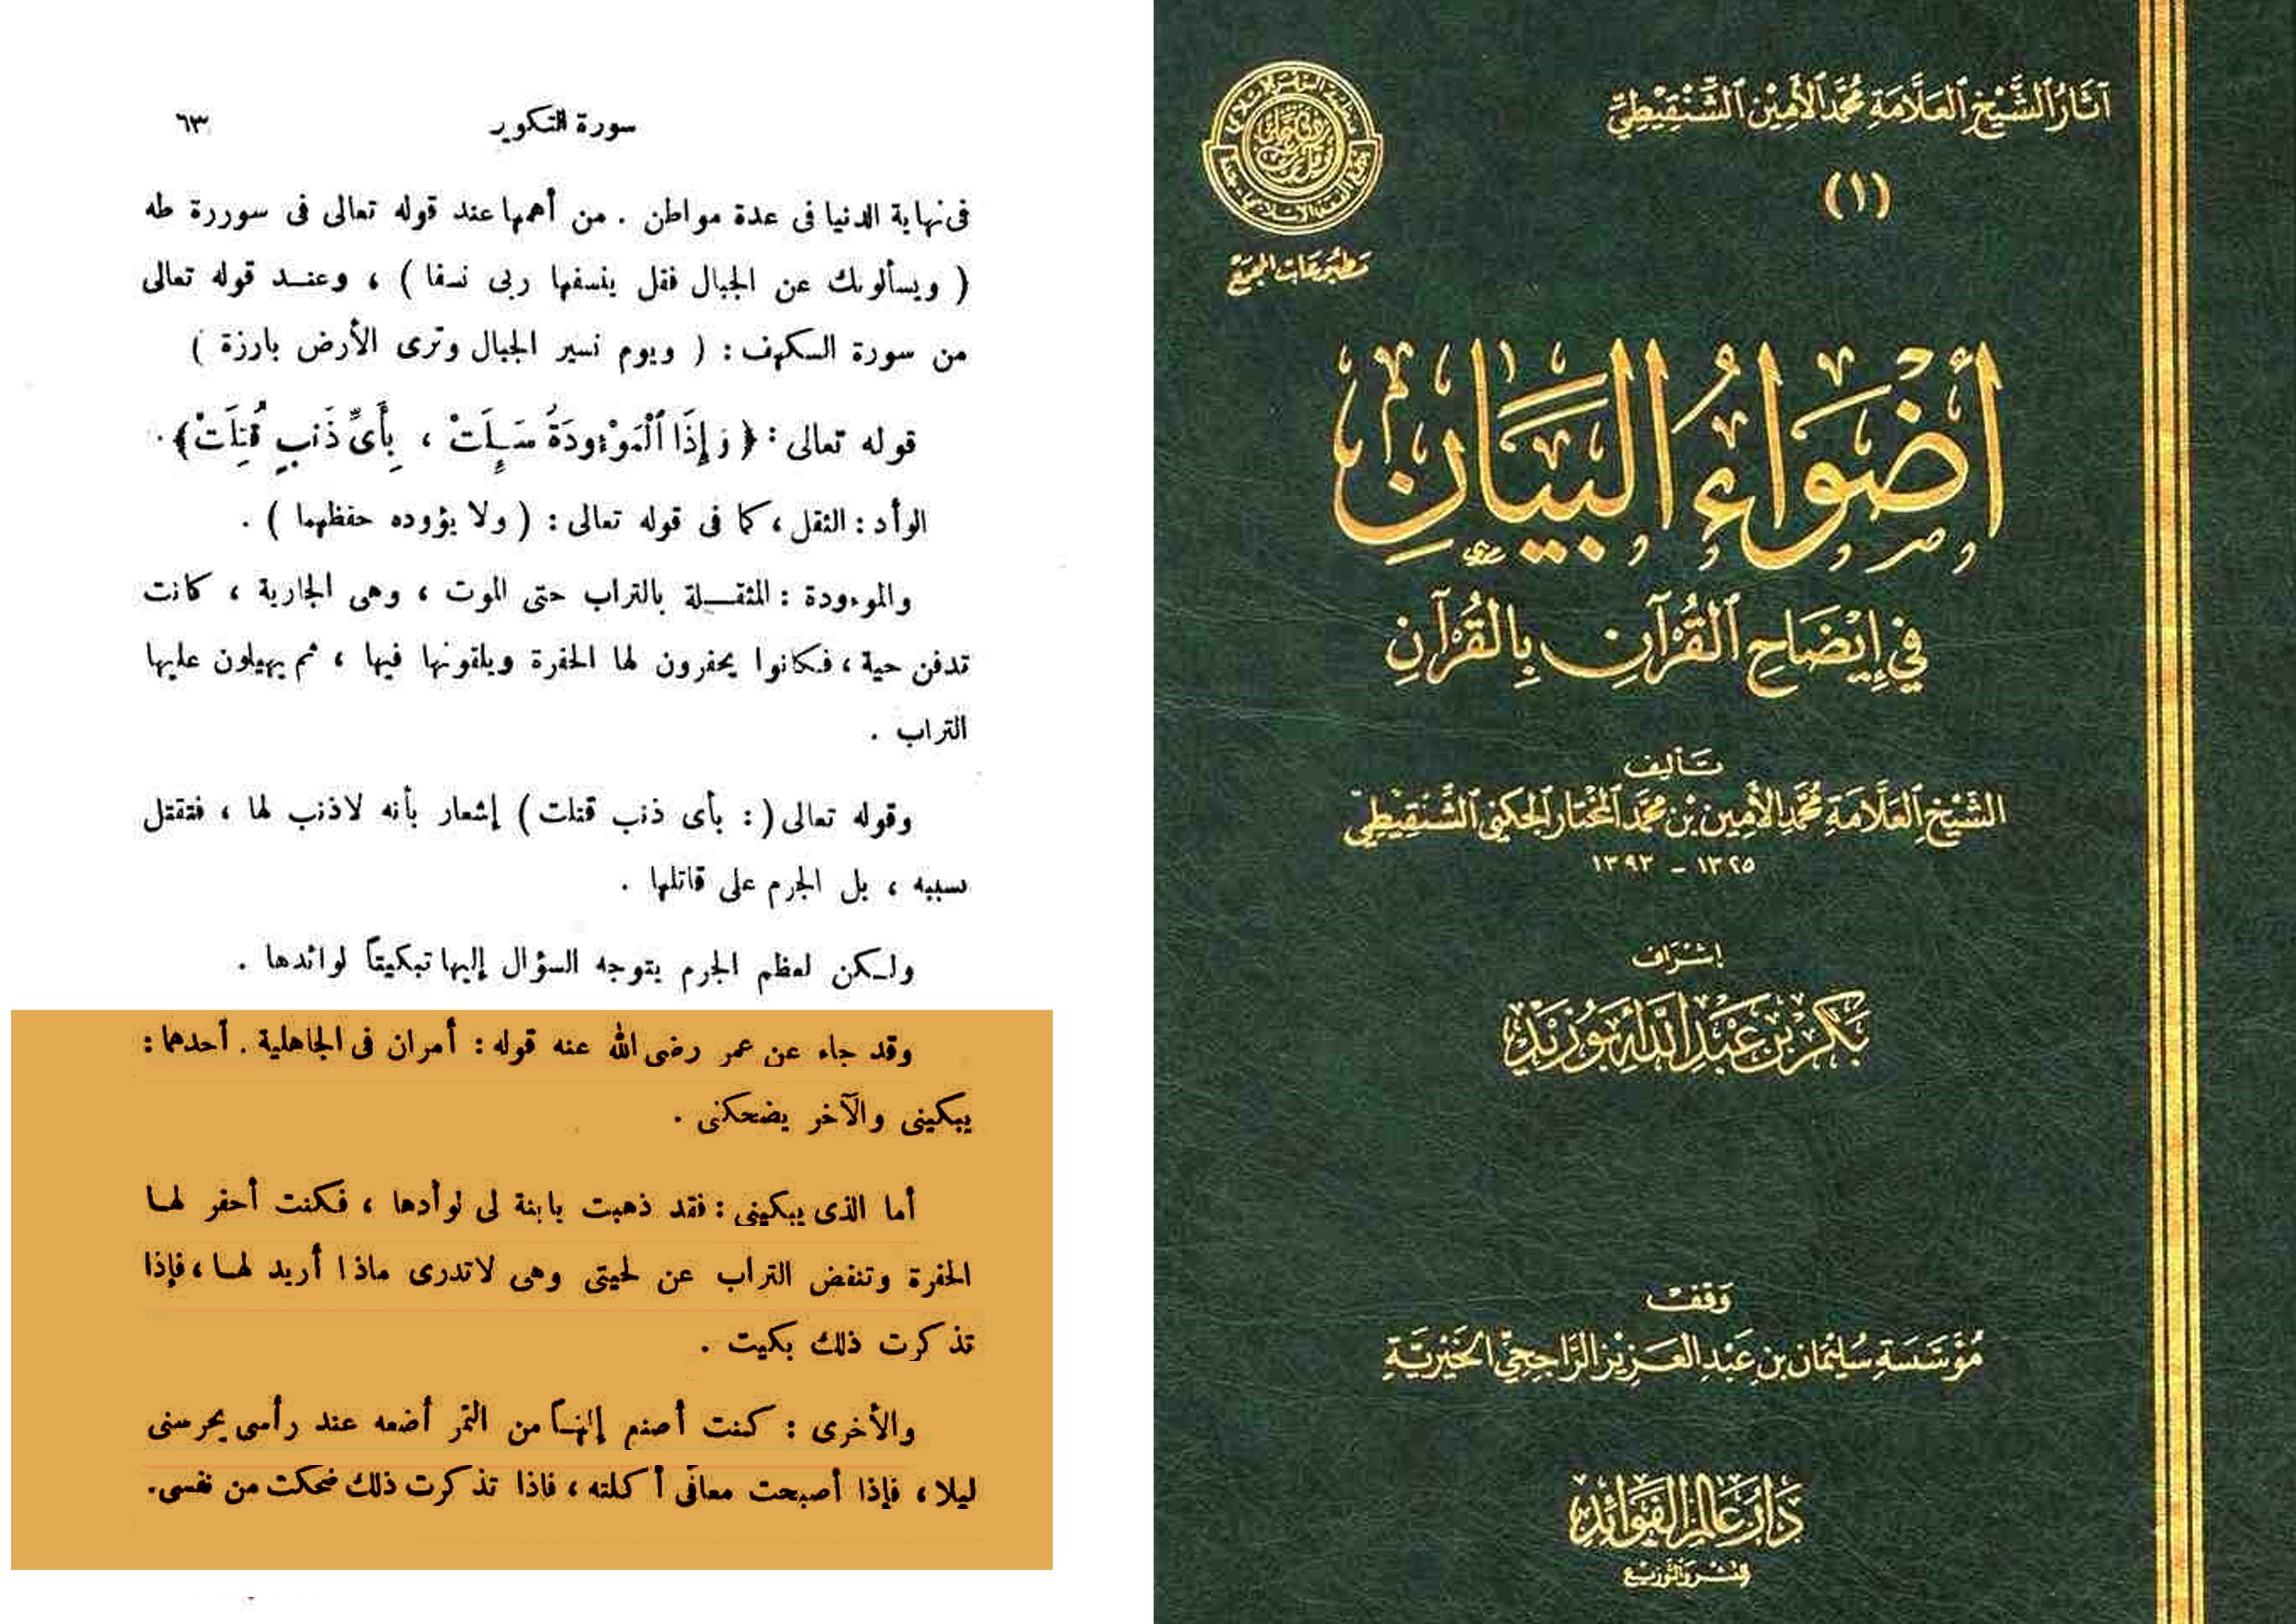 سورة التكوير
٦٣
فى نهاية الدنيا فى عدة مواطن . من أهمها عند قوله تعالى فى سوررة طه
( ويسألونك عن الجبال فقل ينسفها ربى نسفا ) ، وعنـد قوله تعالى
من سورة الكهف : ( ويوم نسير الجبال وترى الأرض بارزة )
قوله تعالى : ﴿ وَإِذَا ٱلْمَوْءُودَةُ سُئِلَتْ ، بِأَىِّ ذَنبٍ قُتِلَتْ﴾ .
الوأد : الثقل ، كما فى قوله تعالى : ( ولا يؤوده حفظهما ) .
والموءودة : المثقـلة بالتراب حتى الموت ، وهى الجارية ، كانت
تدفن حية ، فكانوا يحفرون لها الحفرة ويلقونها فيها ، ثم يهيلون عليها
التراب .
وقوله تعالى ( : بأى ذنب قتلت ) إشعار بأنه لاذنب لها ، فتقتل
بسببه ، بل الجرم على قاتلها .
ولـكن لعظم الجرم يتوجه السؤال إليها تبكيتاً لوائدها .
وقد جاء عن عمر رضى الله عنه قوله : أمران فى الجاهلية . أحدهما :
يبكينى والآخر يضحكنى .
أما الذى يبكينى : فقد ذهبت بابنة لى لوأدها ، فكنت أحفر لهـا
الحفرة وتنفض التراب عن لحيتى وهى لاتدرى ماذا أريد لهـا ، فإذا
تذكرت ذلك بكيت .
والأخرى : كنت أصنع إلهـاً من التمر أضعه عند رأسى يحرسنى
ليلا ، فإذا أصبحت معافى أكلته ، فاذا تذكرت ذلك ضحكت من نفسى .
آثَارُ ٱلشَّيْخِ ٱلعَلَّامَةِ مُحَمَّد ٱلأَمِين ٱلشَّنْقِيْطِيّ
(١)
مَطبُوعَات المجمَع
أَضْوَاءُ البَيَانِ
فِي إِيْضَاحِ ٱلْقُرْآنِ بِالْقُرْآنِ
تَأليف
الشَّيْخِ ٱلعَلَّامَةِ مُحَمَّد ٱلأَمِين بْن مُحَمَّد ٱلمُخْتَار ٱلجَكَنِي ٱلشَّنْقِيطِيّ
١٣٢٥ - ١٣٩٣
إشْرَاف
بَكْر بْن عَبْد ٱللَّه أَبُو زَيْد
وَقف
مُؤَسَّسَةِ سُلَيْمَان بن عَبْد العَزِيْز الرَّاجِحِيّ الخَيْرِيَّةِ
دَارُ عَالَم الفَوَائِد
للنَّشْر وَالتَّوزِيْع